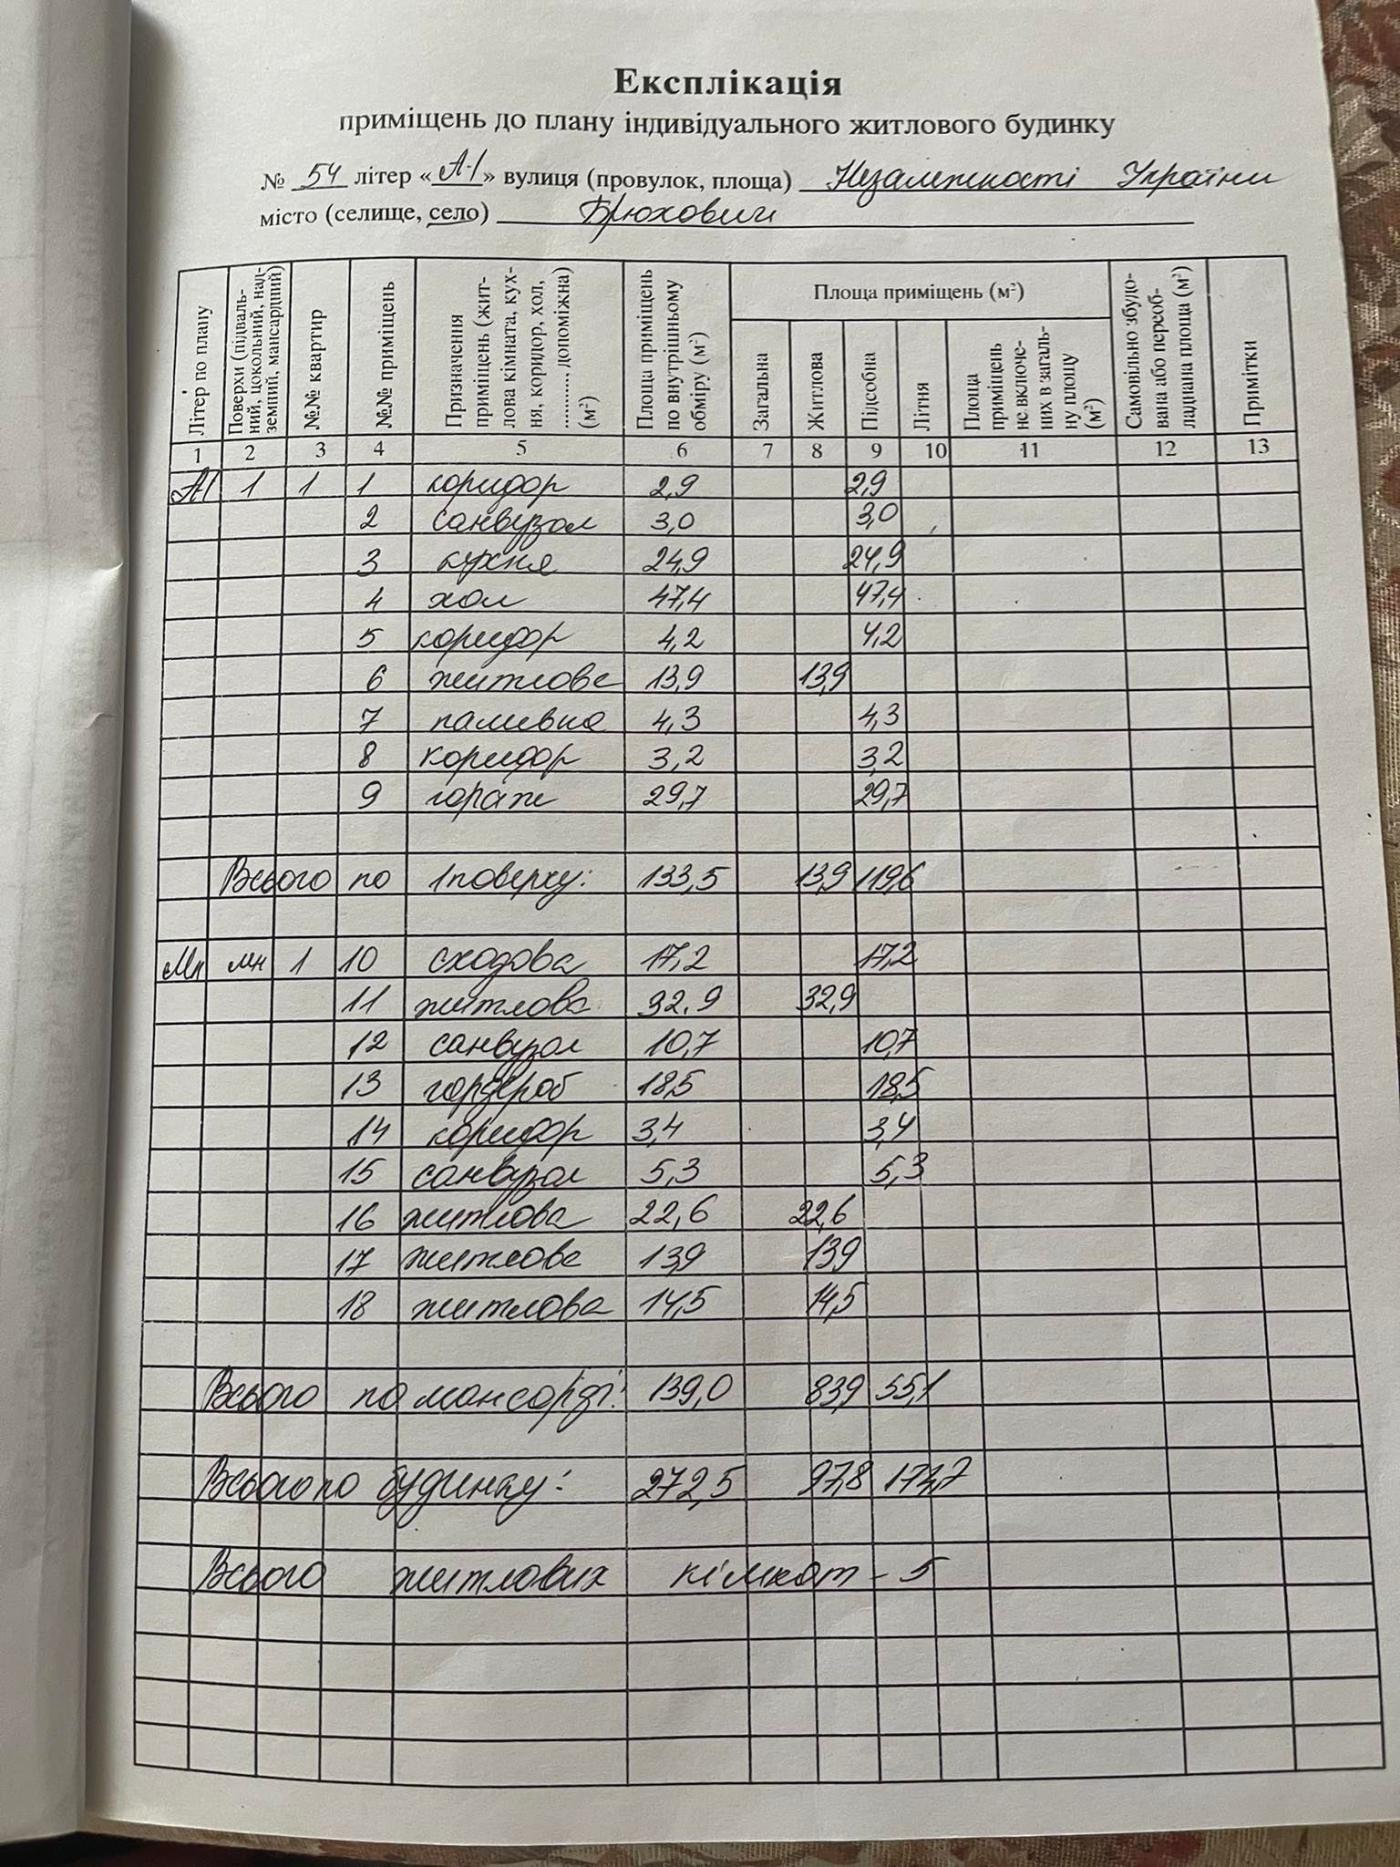 Експлікація
приміщень до плану індивідуального житлового будинку
№ 54 літер «А-1» вулиця (провулок, площа) Незалежності України
місто (селище, село) Брюховичі
Літер по плану
Поверхи (підвальний, цокольний, надземний, мансардний)
№№ квартир
№№ приміщень
Призначення приміщень (житлова кімната, кухня, коридор, хол, ............ допоміжна) (м²)
Площа приміщень по внутрішньому обміру (м²)
Площа приміщень (м²)
Загальна
Житлова
Підсобна
Літня
Площа приміщень не включених в загальну площу (м²)
Самовільно збудована або переобладнана площа (м²)
Примітки
1 2 3 4 5 6 7 8 9 10 11 12 13
А1 1 1 1 коридор 2,9 2,9
2 санвузол 3,0 3,0
3 кухня 24,9 24,9
4 хол 47,4 47,4
5 коридор 4,2 4,2
6 житлова 13,9 13,9
7 паливна 4,3 4,3
8 коридор 3,2 3,2
9 гараж 29,7 29,7
Всього по 1поверху: 133,5 13,9 119,6
мн 1 10 сходова 17,2 17,2
11 житлова 32,9 32,9
12 санвузол 10,7 10,7
13 гардероб 18,5 18,5
14 коридор 3,4 3,4
15 санвузол 5,3 5,3
16 житлова 22,6 22,6
17 житлова 13,9 13,9
18 житлова 14,5 14,5
Всього по мансарді: 139,0 83,9 55,1
Всього по будинку: 272,5 97,8 174,7
Всього житлових кімнат - 5